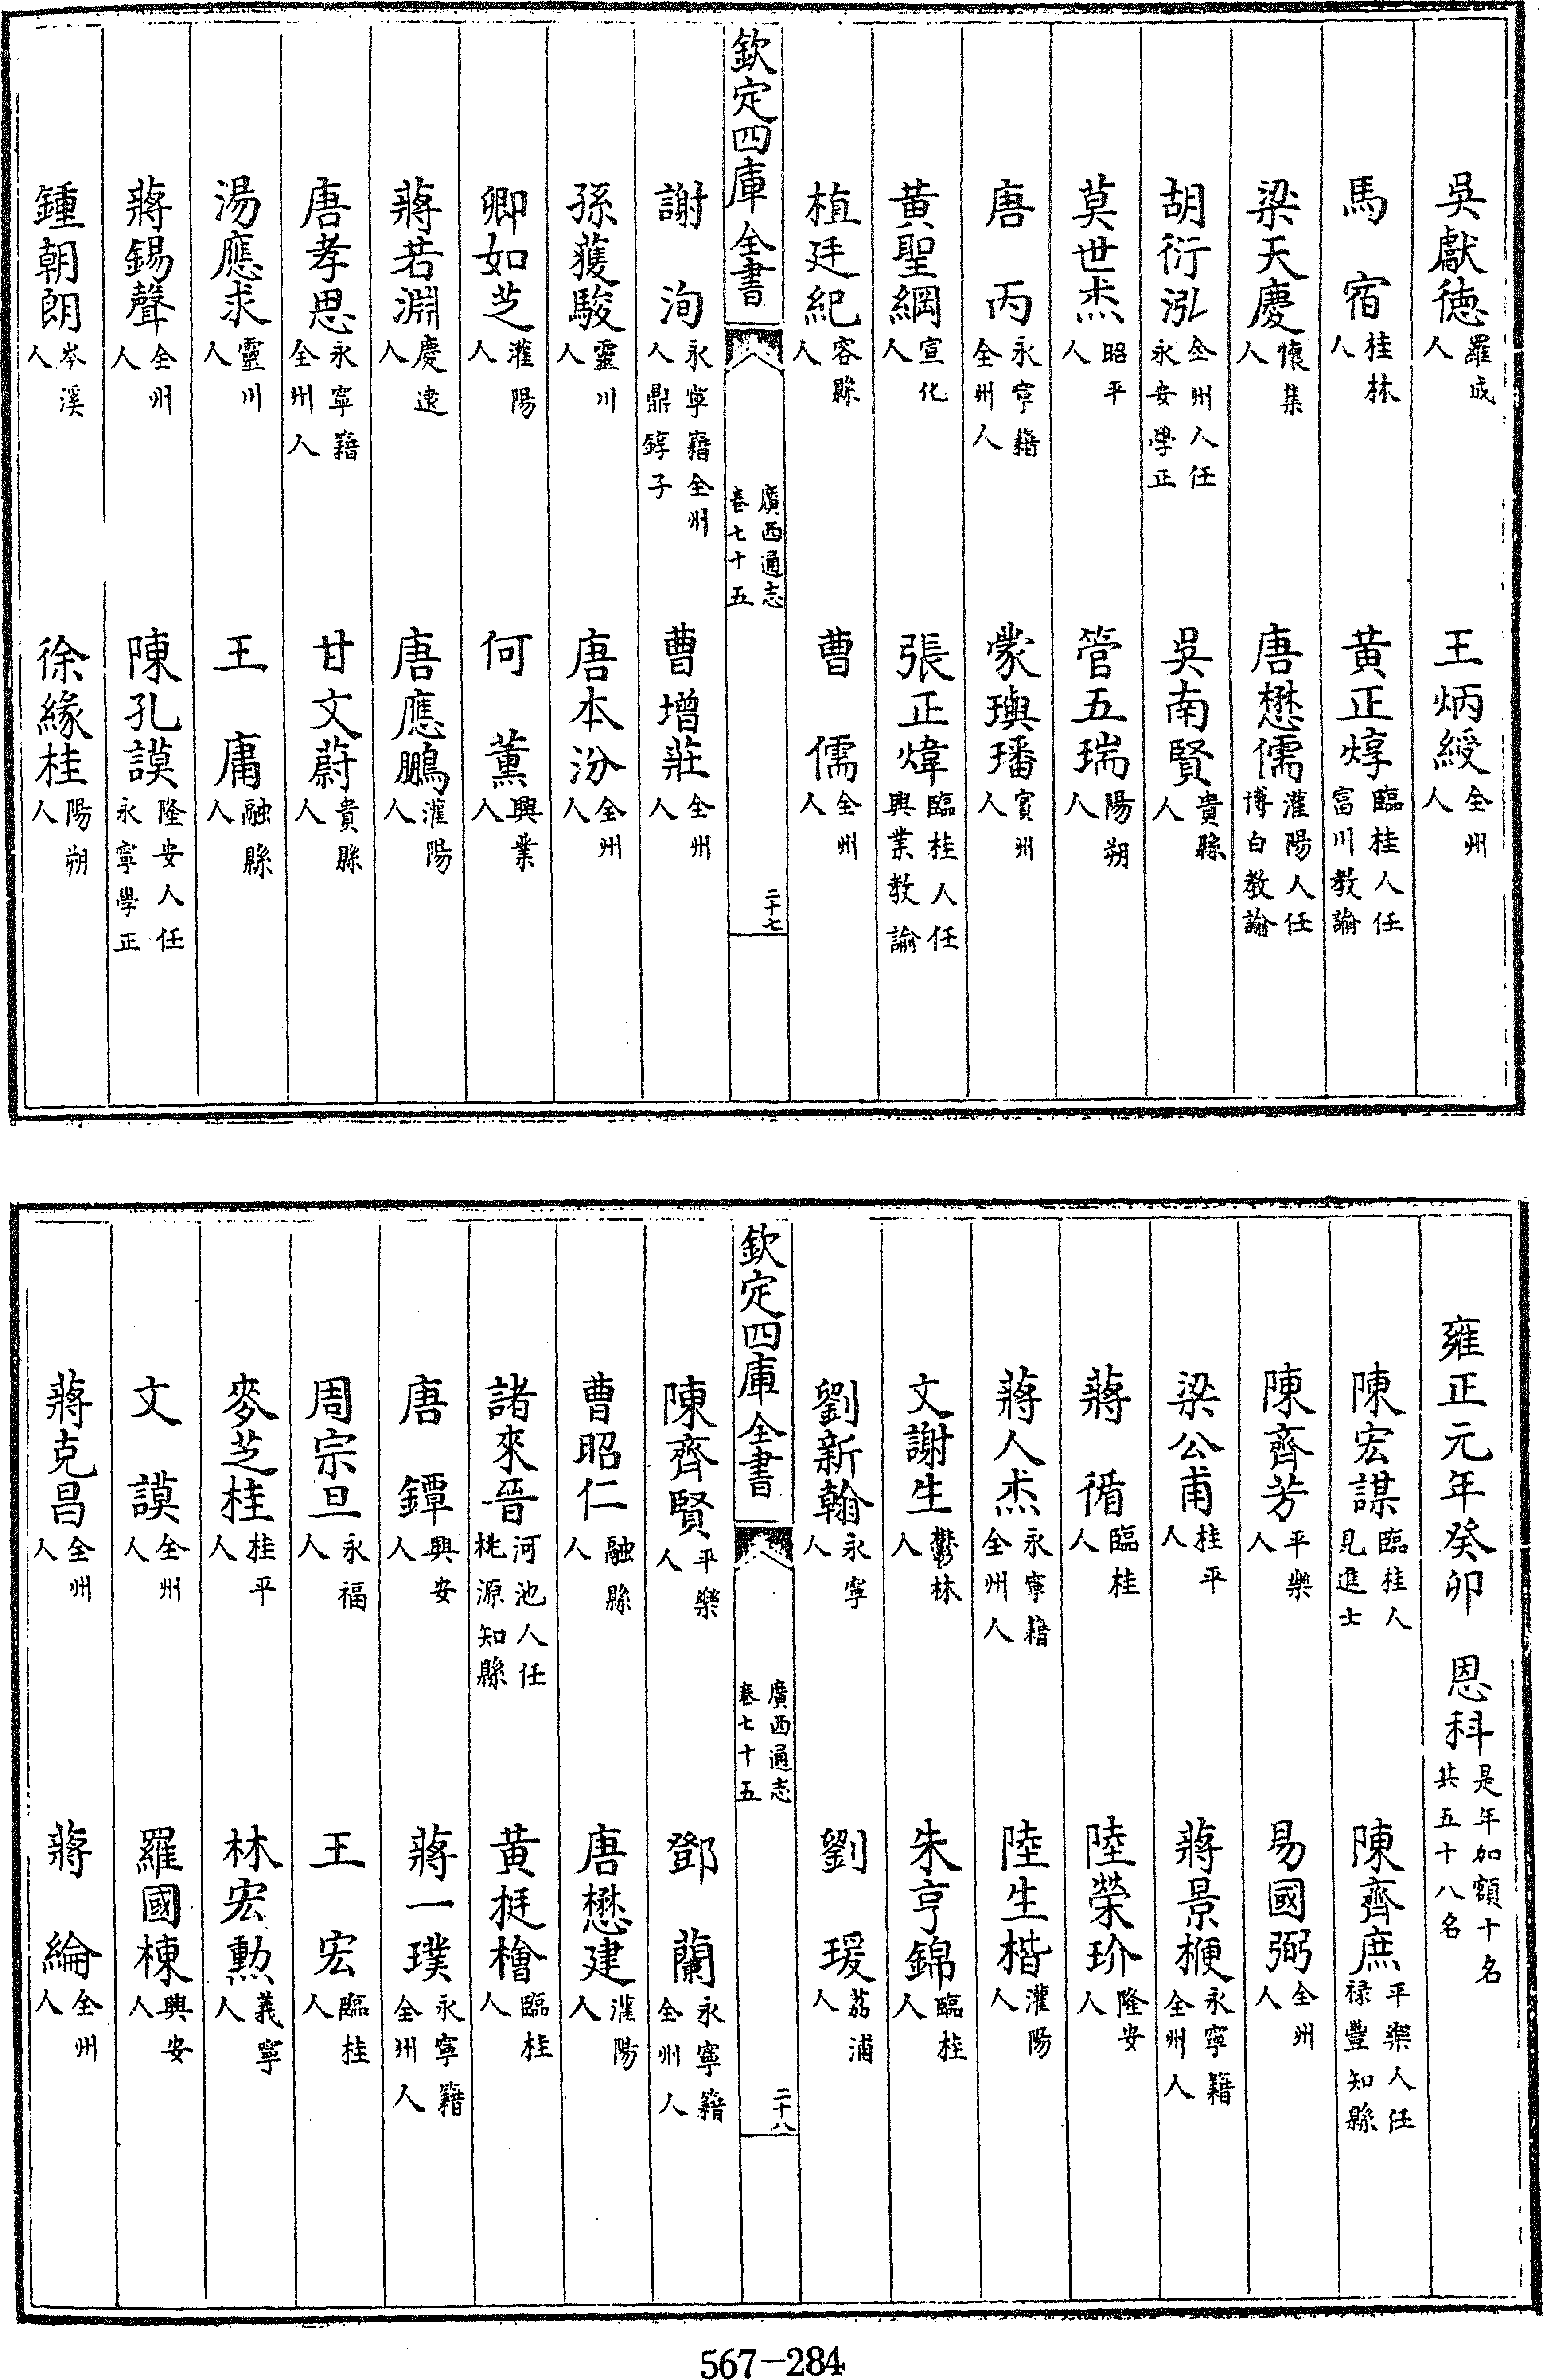 吳獻德羅成人　王炳綬全州人
馬宿桂林人　黃正焞臨桂人任富川教諭
梁天慶懷集人　唐懋儒灌陽人任博白教諭
胡衍泓全州人任永安學正　吳南賢貴縣人
莫世杰昭平人　管五瑞陽朔人
唐丙永寧籍全州人　蒙璵璠賓州人
黃聖綱宣化人　張正煒臨桂人任興業教諭
植廷紀容縣人　曹儒全州人
欽定四庫全書　廣西通志卷七十五　二十七
謝洵永寧籍全州人鼎錞子　曹增莊全州人
孫蒦駿靈川人　唐本汾全州人
卿如芝灌陽人　何薰興業人
蔣若淵慶遠人　唐應鵬灌陽人
唐孝思永寧籍全州人　甘文蔚貴縣人
湯應求靈川人　王庸融縣人
蔣錫聲全州人　陳孔謨隆安人任永寧學正
鍾朝朗岑溪人　徐緣桂陽朔人
雍正元年癸卯　恩科是年加額十名共五十八名
陳宏謀臨桂人見進士　陳齊庶平樂人任祿豐知縣
陳齊芳平樂人　易國弼全州人
梁公甫桂平人　蔣景㮌永寧籍全州人
蔣循臨桂人　陸榮玠隆安人
蔣人杰永寧籍全州人　陸生楷灌陽人
文謝生鬱林人　朱亨錦臨桂人
劉新翰永寧人　劉瑗荔浦人
欽定四庫全書　廣西通志卷七十五　二十八
陳齊賢平樂人　鄧蘭永寧籍全州人
曹昭仁融縣人　唐懋建灌陽人
諸來晉河池人任桃源知縣　黃挺檜臨桂人
唐鐔興安人　蔣一璞永寧籍全州人
周宗旦永福人　王宏臨桂人
麥芝桂桂平人　林宏勲義寧人
文謨全州人　羅國棟興安人
蔣克昌全州人　蔣綸全州人
567-284